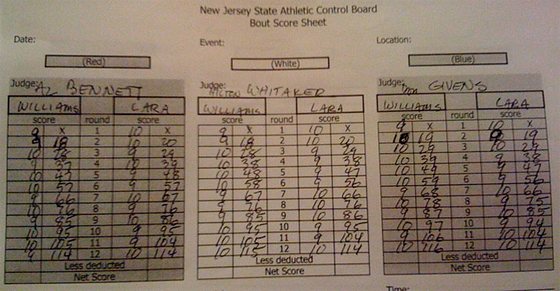 New Jersey State Athletic Control Board
Bout Score Sheet
Date:
Event:
Location:
(Red)
(White)
(Blue)
Judge: Al BENNETT
WILLIAMS LARA
score round score
9 X 1 10 X
9 18 2 10 20
10 28 3 9 29
9 37 4 10 39
10 47 5 9 48
10 57 6 9 57
9 66 7 10 67
10 76 8 9 76
9 85 9 10 86
10 95 10 9 95
10 105 11 9 104
9 114 12 10 114
Less deducted
Net Score
Judge: HILTON WHITAKER
WILLIAMS LARA
score round score
9 X 1 10 X
9 18 2 10 20
10 28 3 9 29
10 38 4 9 38
10 48 5 9 47
10 58 6 9 56
9 67 7 10 66
9 76 8 10 76
9 85 9 10 86
10 95 10 9 95
10 105 11 9 104
9 114 12 10 114
Less deducted
Net Score
Judge: GIVENS
WILLIAMS LARA
score round score
9 X 1 10 X
19 2 9 19
10 29 3 10 29
10 39 4 9 38
10 49 5 9 47
10 59 6 9 56
9 68 7 10 66
10 78 8 9 75
9 87 9 10 85
10 97 10 9 94
106 11 10 104
10 116 12 10 114
Less deducted
Net Score
Time: